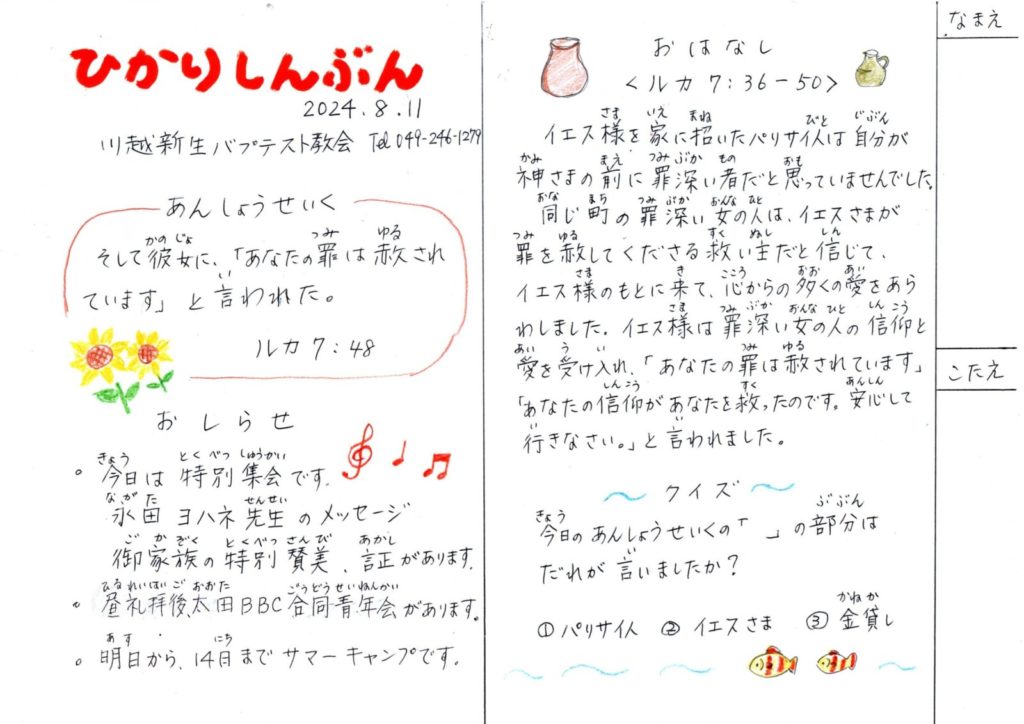 ひかりしんぶん
2024.8.11
川越新生バプテスト教会 Tel 049-246-1279
あんしょうせいく
そして彼女に、「あなたの罪は赦され
ています」と言われた。
ルカ 7:48
おしらせ
。今日は特別集会です。
永田 ヨハネ 先生 のメッセージ
御家族の特別賛美、証があります。
。昼礼拝後太田BBC合同青年会があります。
。明日から、14日までサマーキャンプです。
おはなし
<ルカ 7:36-50>
イエス様を家に招いたパリサイ人は自分が
神さまの前に罪深い者だと思っていませんでした。
同じ町の罪深い女の人は、イエスさまが
罪を赦してくださる救い主だと信じて、
イエス様のもとに来て、心からの多くの愛をあら
わしました。イエス様は罪深い女の人の信仰と
愛を受け入れ、「あなたの罪は赦されています」
「あなたの信仰があなたを救ったのです。安心して
行きなさい。」と言われました。
クイズ
今日のあんしょうせいくの「 」の部分は
だれが言いましたか?
①パリサイ人 ②イエスさま ③金貸し
なまえ
こたえ